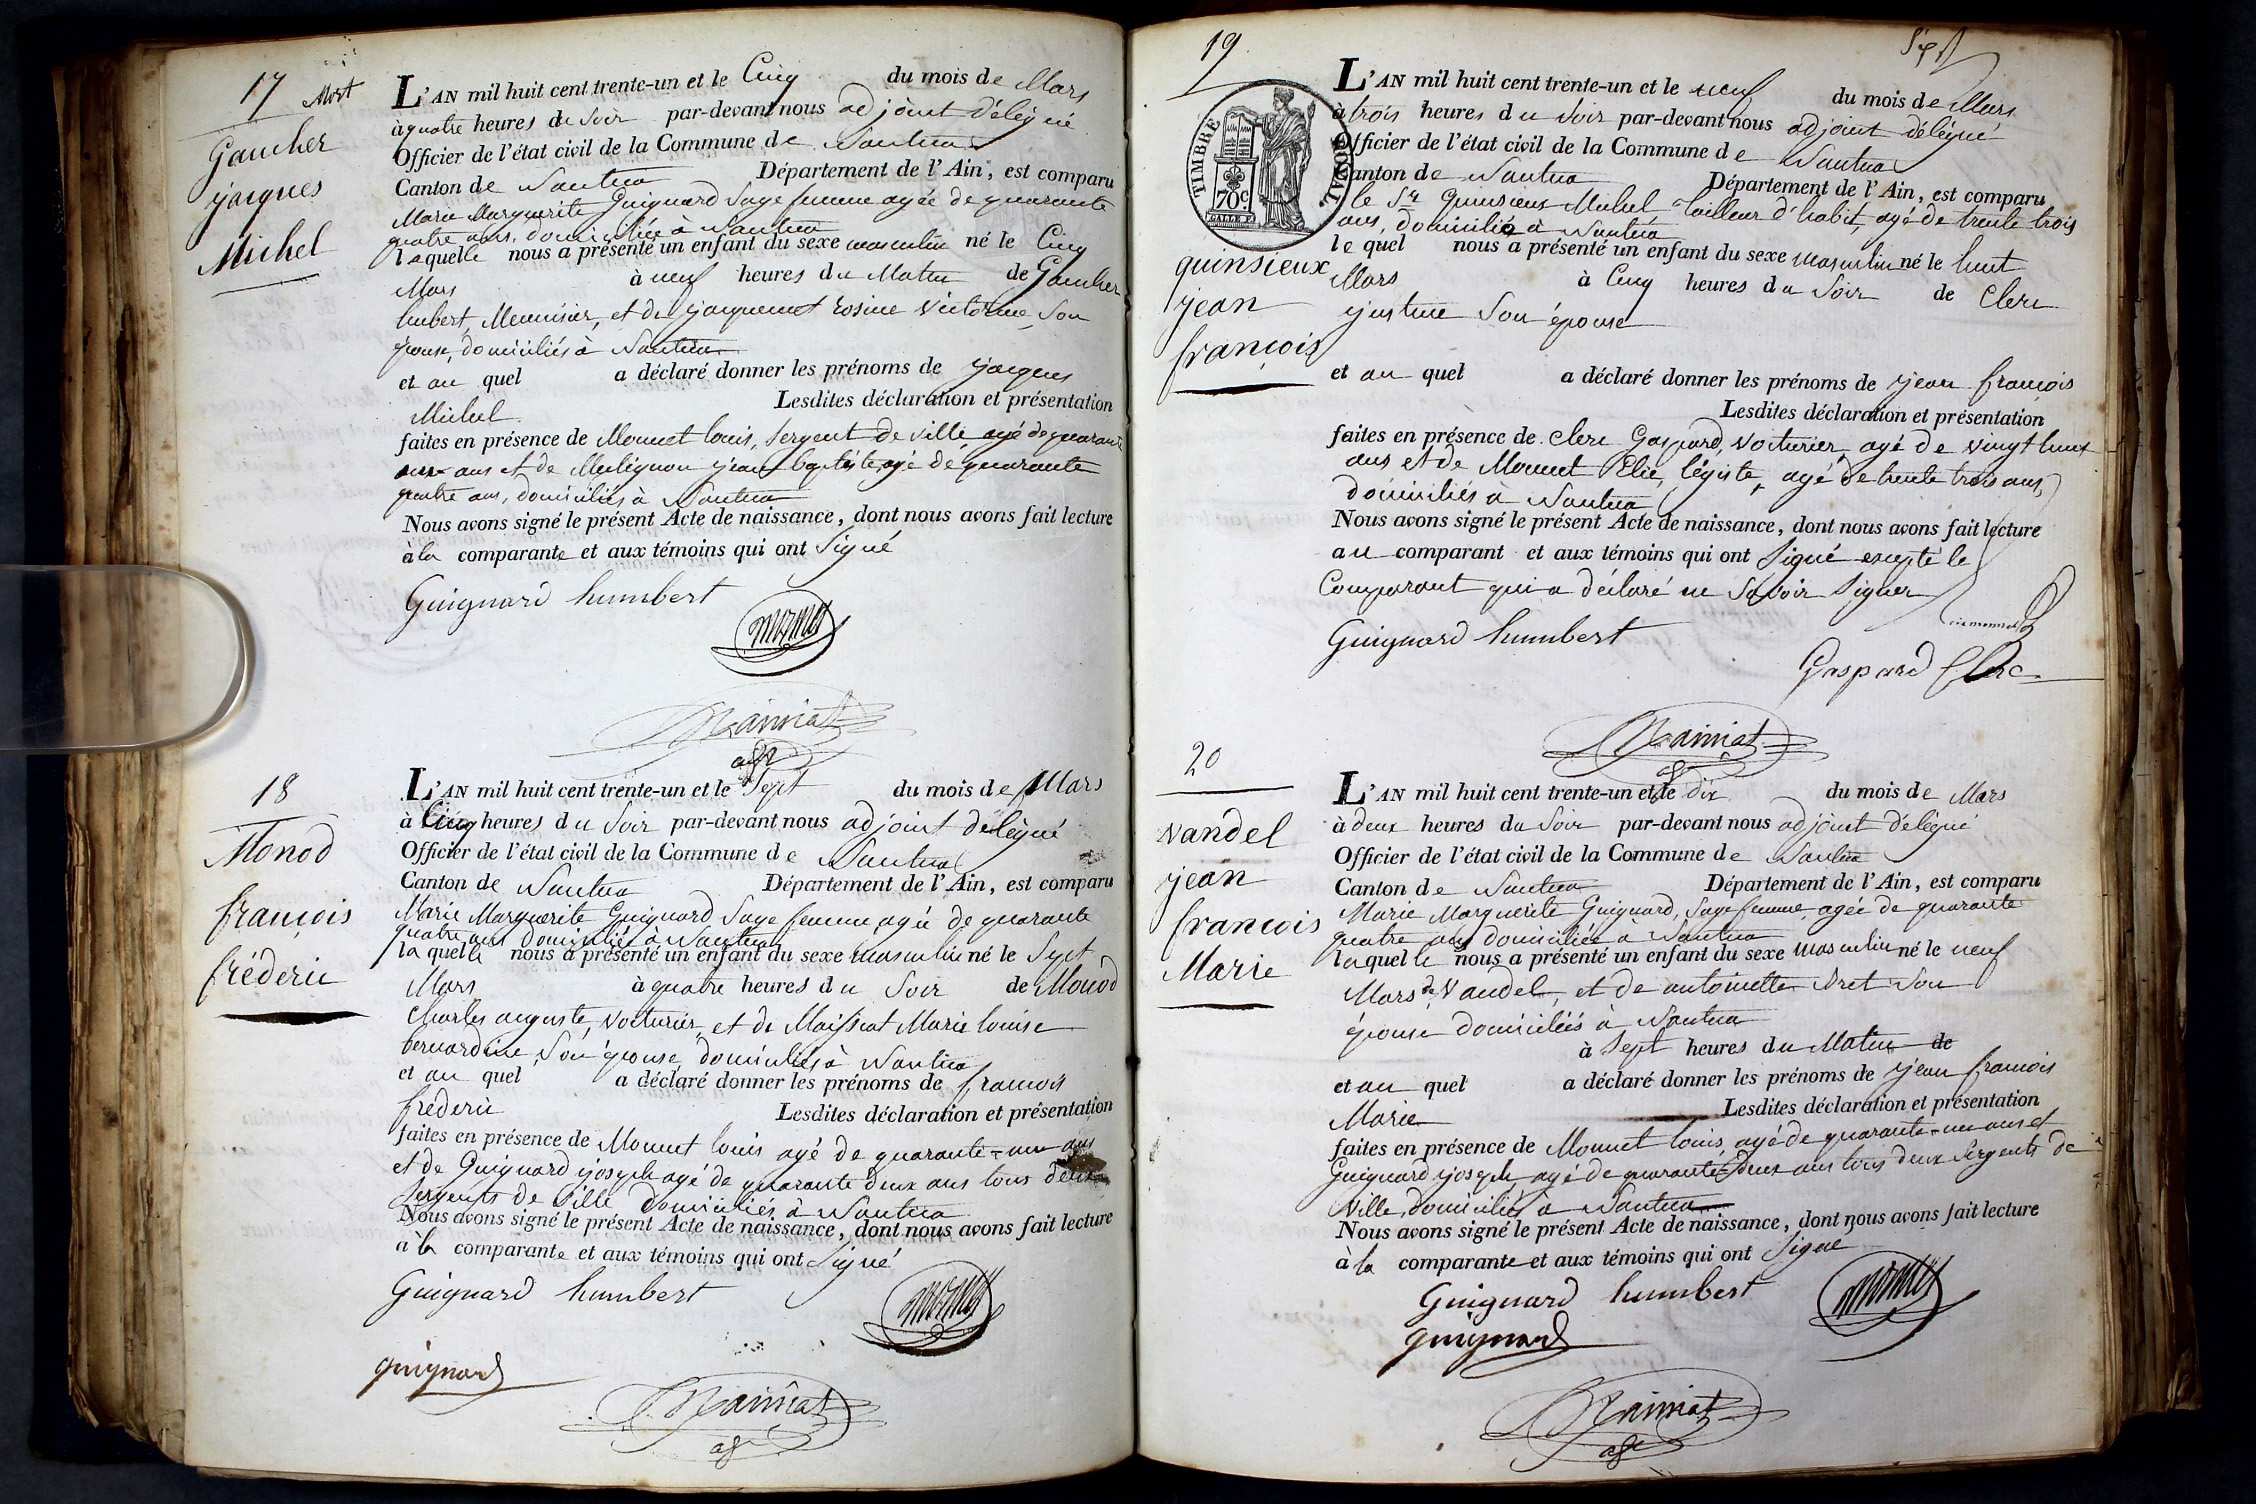 17 Mort
Gaucher
jacques
Michel
L'AN mil huit cent trente-un et le Cinq du mois de Mars
à quatre heures du Soir par-devant nous adjoint délégué
Officier de l'état civil de la Commune de Nantua
Canton de Nantua Département de l'Ain, est comparu
Marie Marguerite Guignard Sage femme agée de quarante
quatre ans, domiciliée à Nantua
laquelle nous a présenté un enfant du sexe masculin né le Cinq
Mars à neuf heures du Matin de Gaucher
humbert, Menuisier, et de jacquemet rosine victorine, Son
épouse, domiciliés à Nantua
et au quel a déclaré donner les prénoms de jacques
Michel Lesdites déclaration et présentation
faites en présence de Monnet louis, Sergent de ville agé de quarante
ans et de jean baptiste, agé de quarante
quatre ans, domiciliés à Nantua
Nous avons signé le présent Acte de naissance, dont nous avons fait lecture
à la comparante et aux témoins qui ont Signé
Guignard humbert
monnet
adj
18
Monod
françois
fréderic
L'AN mil huit cent trente-un et le Sept du mois de Mars
à Cinq heures du Soir par-devant nous adjoint délégué
Officier de l'état civil de la Commune de Nantua
Canton de Nantua Département de l'Ain, est comparu
Marie Marguerite Guignard Sage femme agée de quarante
quatre ans domiciliée à Nantua
laquelle nous a présenté un enfant du sexe masculin né le Sept
Mars à quatre heures du Soir de Monod
Charles auguste, Voiturier, et de Maissiat Marie louise
bernardine, Son épouse, domiciliés à Nantua
et au quel a déclaré donner les prénoms de françois
frederic Lesdites déclaration et présentation
faites en présence de Monnet louis agé de quarante-un ans
et de Guignard joseph agé de quarante deux ans tous deux
Sergents de Ville domiciliés à Nantua
Nous avons signé le présent Acte de naissance, dont nous avons fait lecture
à la comparante et aux témoins qui ont Signé
Guignard humbert
monnet
guignard
adj
19
Sept
TIMBRE ROYAL
70c
quinsieux
jean
françois
L'AN mil huit cent trente-un et le neuf du mois de Mars
à trois heures du Soir par-devant nous adjoint délégué
Officier de l'état civil de la Commune de Nantua
Canton de Nantua Département de l'Ain, est comparu
le Sr Quinsieux Michel tailleur d'habit, agé de trente trois
ans, domicilié à Nantua
lequel nous a présenté un enfant du sexe masculin né le huit
Mars à Cinq heures du Soir de Clerc
justine Son épouse
et au quel a déclaré donner les prénoms de jean françois
Lesdites déclaration et présentation
faites en présence de Clerc Gaspard, Voiturier, agé de vingt huit
ans et de Monnet Elie, légiste, agé de trente trois ans,
domiciliés à Nantua
Nous avons signé le présent Acte de naissance, dont nous avons fait lecture
au comparant et aux témoins qui ont Signé excepté le
Comparant qui a déclaré ne Savoir Signer
Guignard humbert
Gaspard Clerc
adj
20
vandel
jean
francois
Marie
L'AN mil huit cent trente-un et le dix du mois de Mars
à deux heures du Soir par-devant nous adjoint délégué
Officier de l'état civil de la Commune de Nantua
Canton de Nantua Département de l'Ain, est comparu
Marie Marguerite Guignard, Sage femme, agée de quarante
quatre ans domiciliée à Nantua
laquelle nous a présenté un enfant du sexe masculin né le neuf
Mars de Vandel, et de antoinette Son
épouse domiciliés à Nantua
à Sept heures du Matin de
et au quel a déclaré donner les prénoms de jean francois
Marie Lesdites déclaration et présentation
faites en présence de Monnet louis, agé de quarante-un ans et
Guignard joseph, agé de quarante-deux ans tous deux Sergents de
Ville, domiciliés à Nantua
Nous avons signé le présent Acte de naissance, dont nous avons fait lecture
à la comparante et aux témoins qui ont Signé
Guignard humbert
monnet
guignard
adj